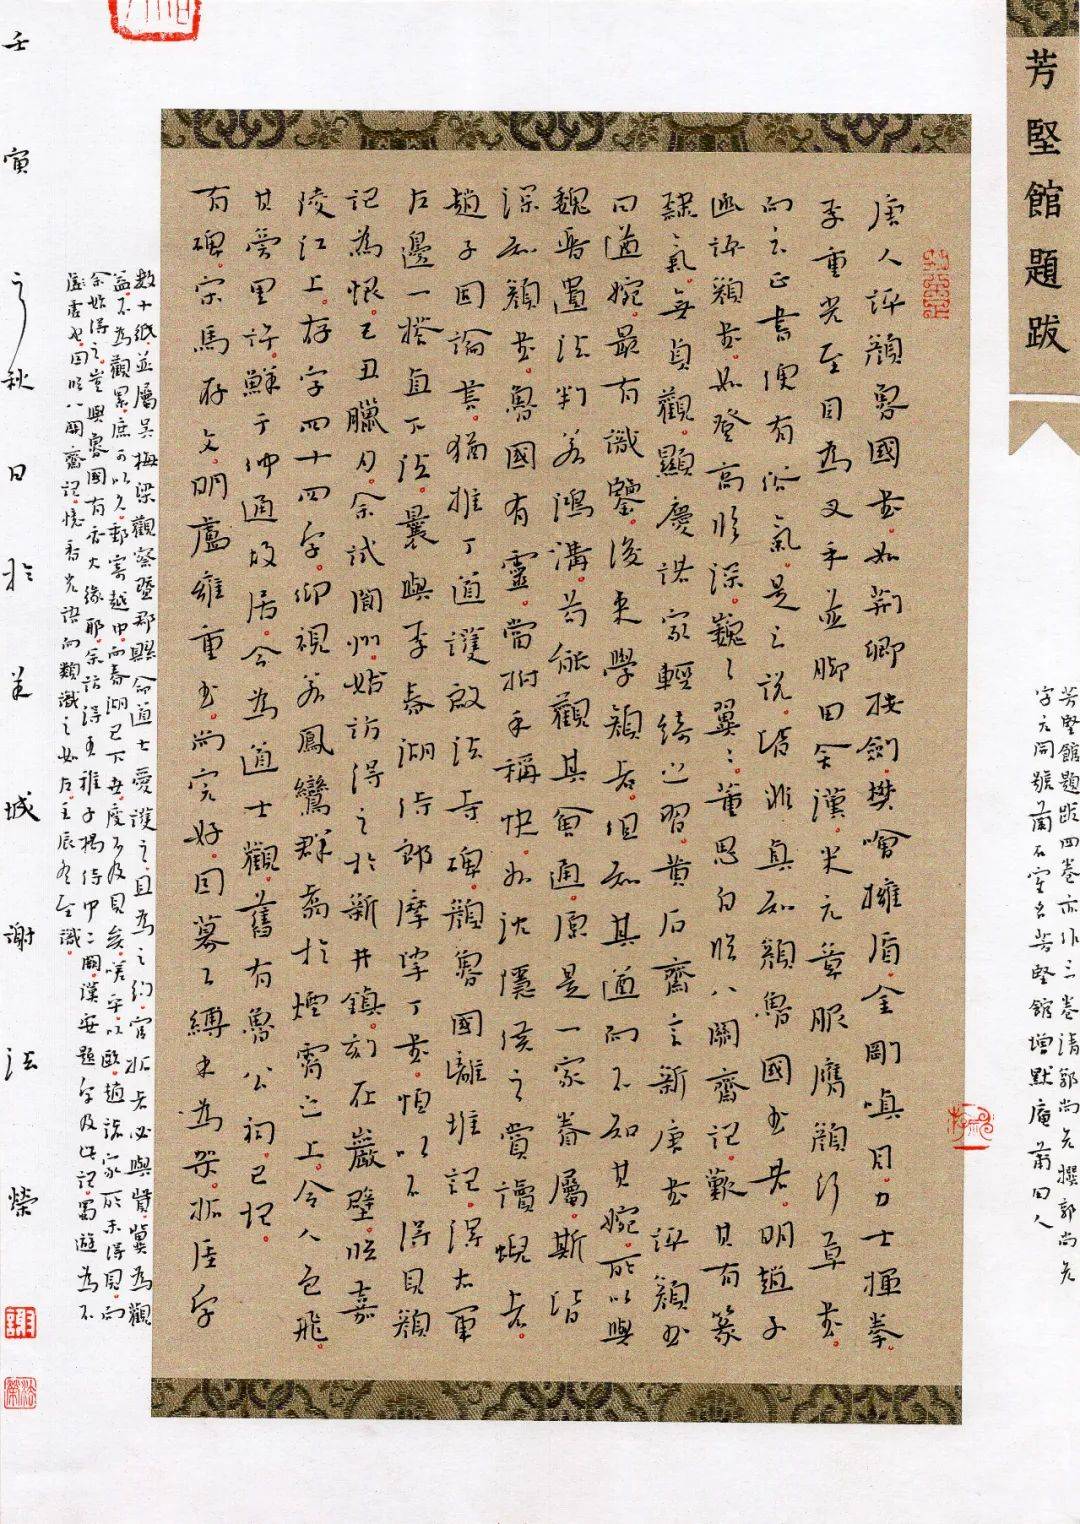 芳堅館題跋
芳堅館題跋四卷亦作三卷清郭尚先撰郭尚先
字元開號蘭石室名芳堅館增默庵蘭石人
唐人評顏魯國書如荊卿按劍樊噲擁盾金剛嗔目力士揮拳
李重光至目為叉手並腳田舍漢米元章服膺顏行草書
而言正書便有俗氣是之說皆非真知顏魯國書者明趙子
函評顏書如登高臨深巍巍翼翼董思白臨八關齋記歎其有篆
隸氣無貞觀顯慶諸家輕綺之習黃石齋言新唐書評顏書
曰遒婉最有識鑒後來學顏者但知其遒而不知其婉所以與
魏晉遺法判若鴻溝苟能觀其會通原是一家眷屬斯皆
深知顏書魯國有靈當拊手稱快如沈隱侯之賞讀蜺者
趙子固論書猶推丁道護啟法寺碑顏魯國離堆記得右軍
左邊一搭直下法曩與李春湖侍郎摩挲丁書怕以不得見顏
記為恨己丑臘月余試閬州始訪得之於新井鎮刻在巖壁臨嘉
陵江上存字四十四字仰視若鳳鸞群翥於煙霄之上令人色飛
其旁里許鮮于仲通故居今為道士觀舊有魯公祠已圮
有碑宋馬存文明盧雍重書尚完好因募工縛木為架拓厓字
數十紙並屬吳梅梁觀察暨郡縣命道士愛護之且為之約官拓者必與貲冀為觀
益不為觀累庶可以久郵寄越中而春湖已下世度不及見矣嗟乎以歐趙諸家所未得見而
余始得之豈與魯國有香火緣耶余訪得王稚子楊侍中二闕漢安題字及此記蜀遊為不
虛也因臨八關齋記憶香光語而類識之如左壬辰冬至識
壬寅之秋日於羊城謝法榮